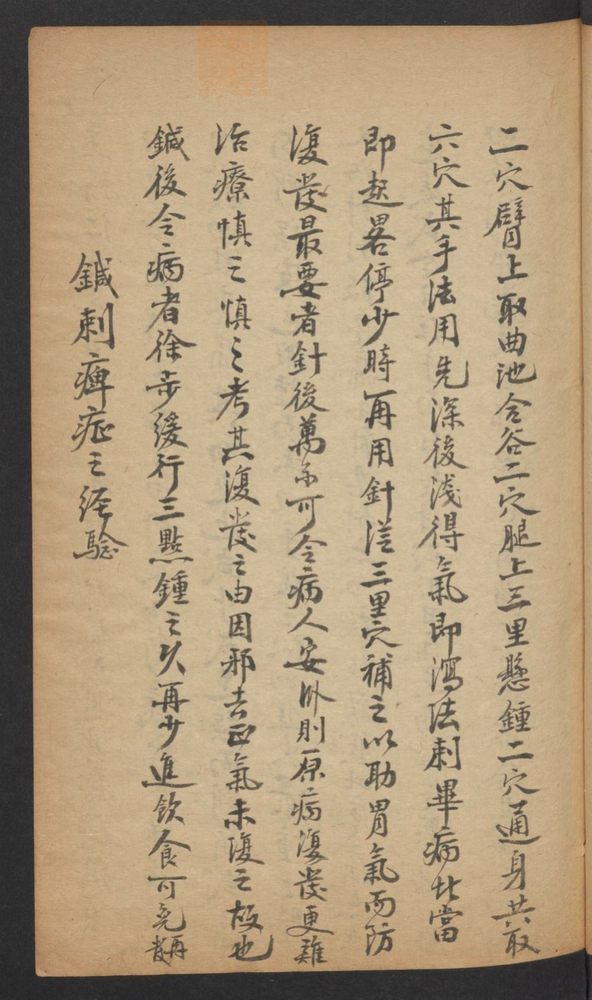 二穴臂上取曲池合谷二穴腿上三里懸鍾二穴通身共取
六穴其手法用先深後淺得氣即瀉法刺畢病此當
即起畧停少時再用針從三里穴補之以助胃氣而防
復發最要者針後萬不可令病人安臥則原病復發更難
治療慎之慎之考其復發之由因邪去正氣未復之故也
鍼後令病者徐步緩行三點鍾之久再少進飲食可免再發
鍼刺痺症之经驗